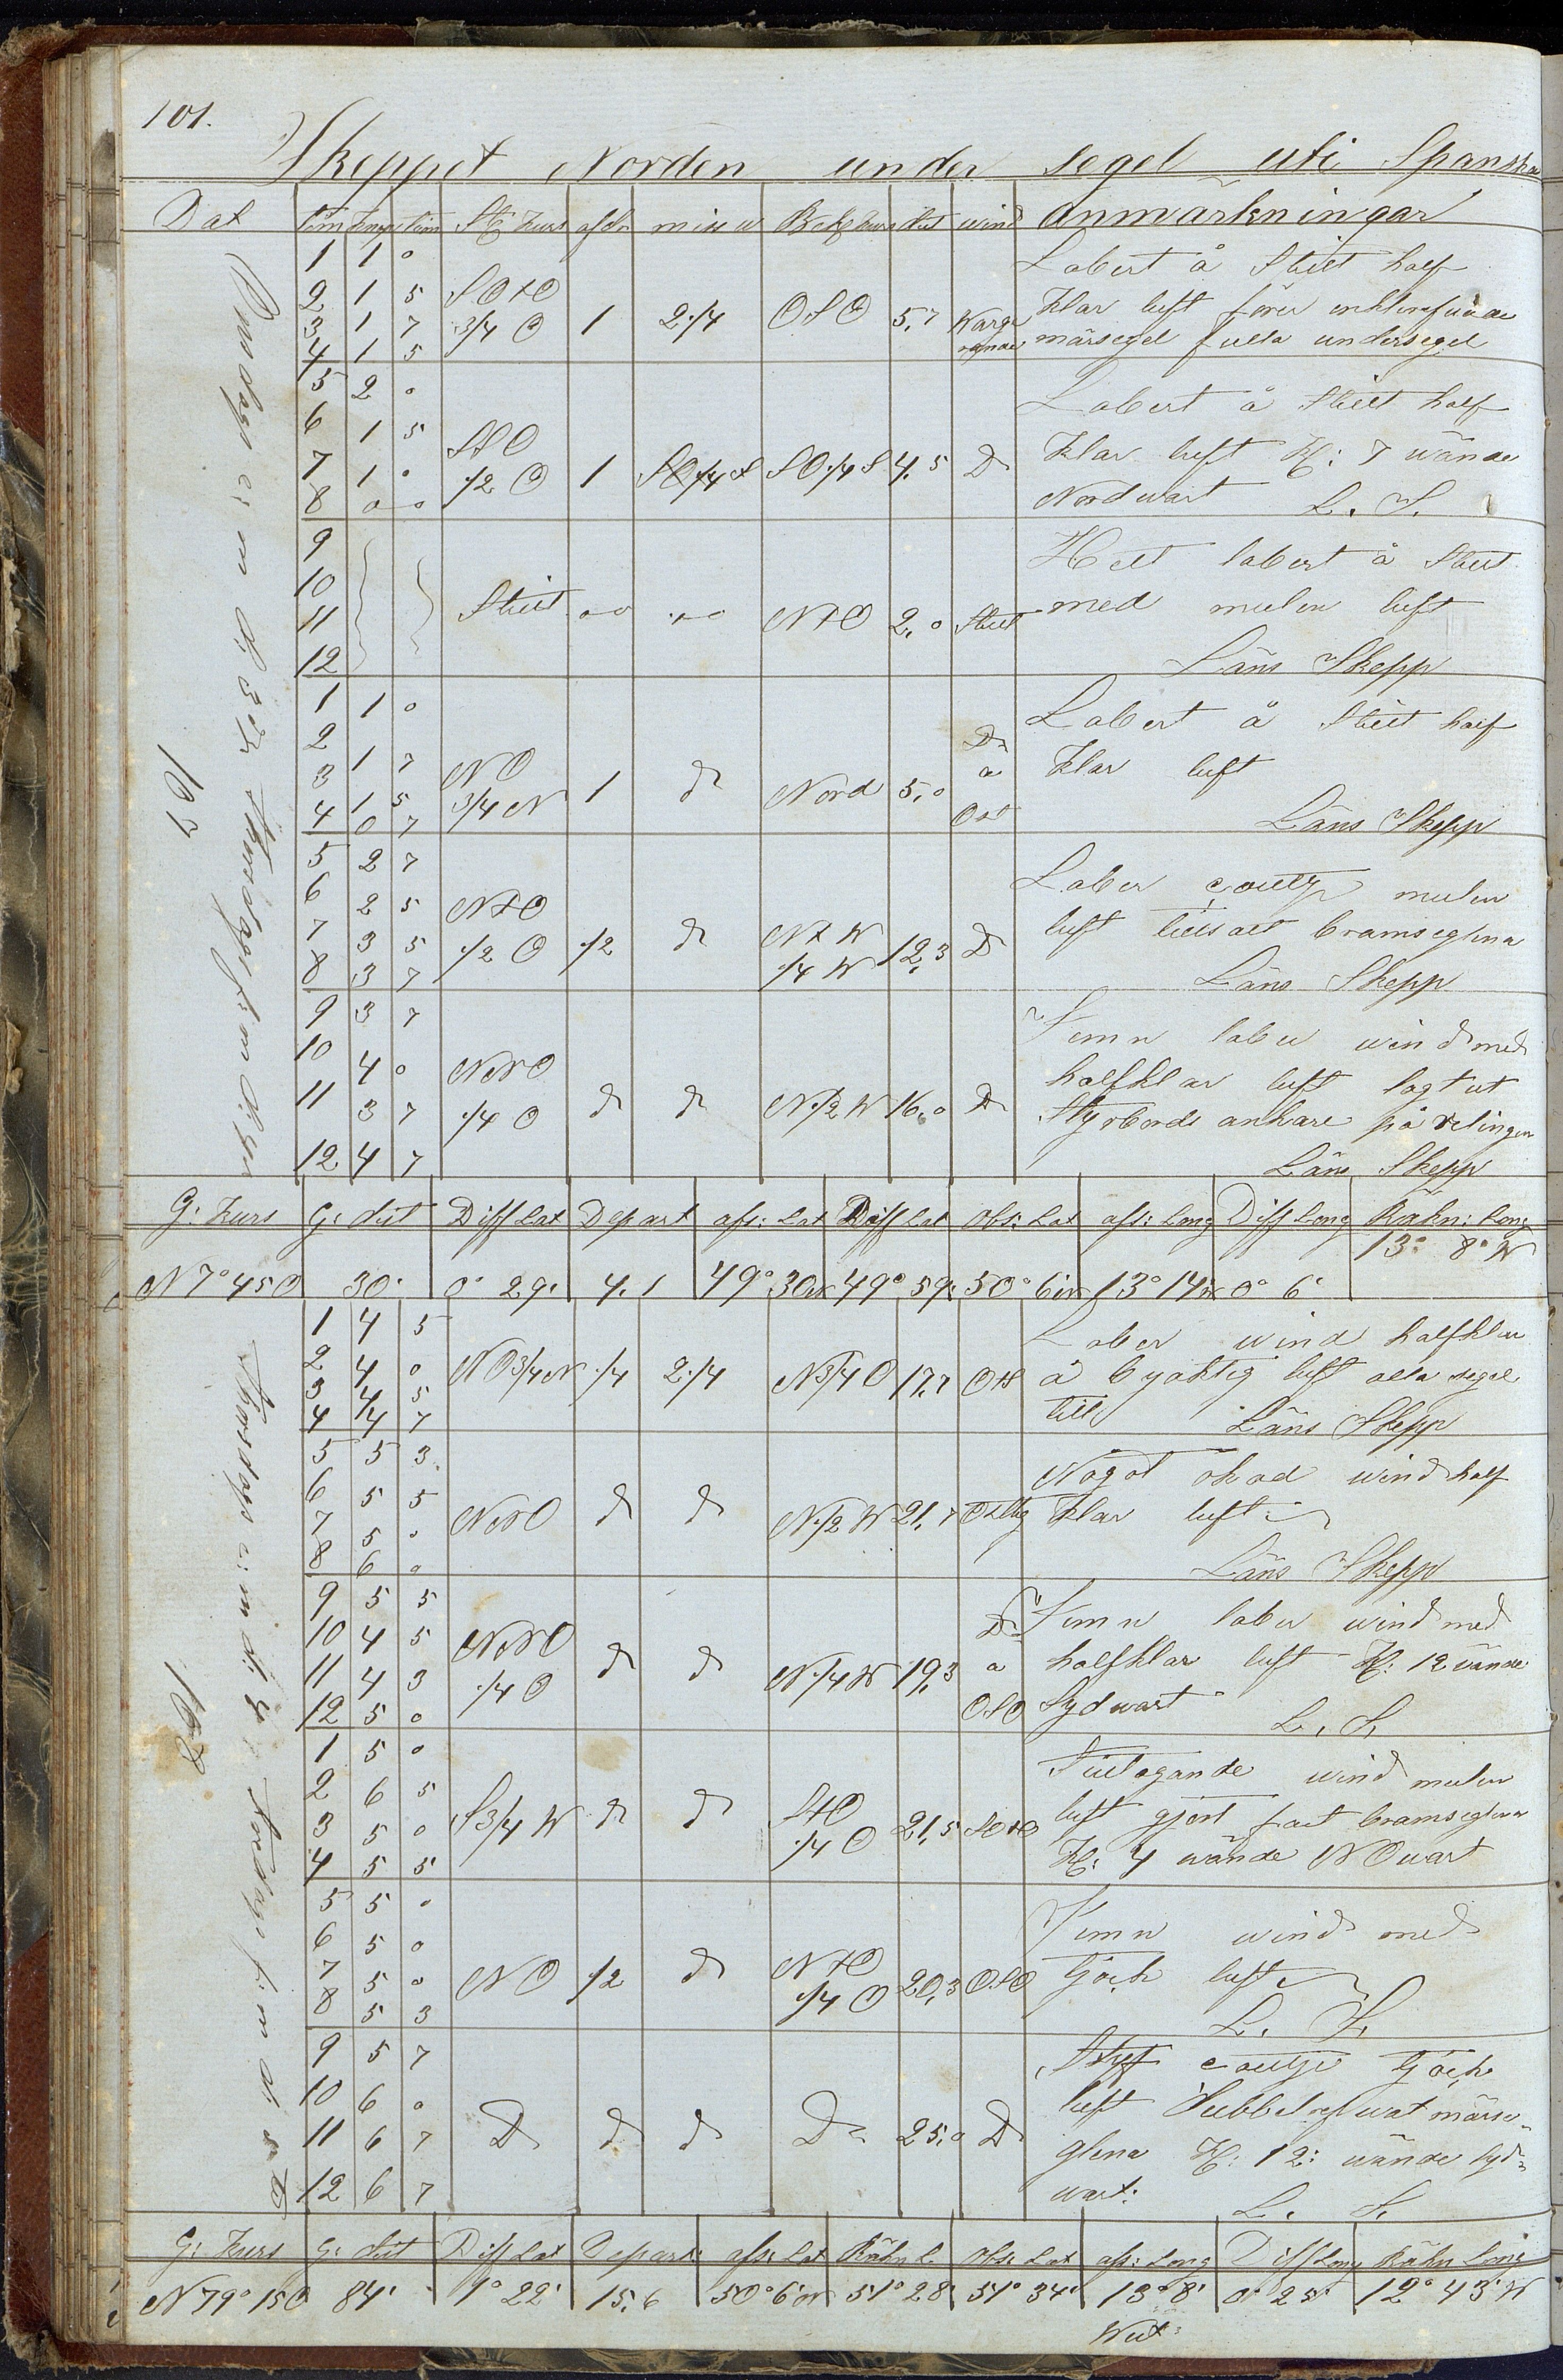 101.
Skeppet Norden under segel uti Spanska
Dat tim knop Stÿ kurs afdr missw Behf kurs dist wind Anmärkningar
1 1 0 Labert å Stilt half
2 1 5 SOtO
3 1 7 3/4 O 1 2./4 OSO 5,7 klar luft förer
4 1 5 märsegel fulla undersegel
5 2 0 Labert å Stilt half
6 1 5 StO
7 1 0 ./2 O 1 SO./4 S SO./4 S 4,5 Do klar luft Kl: 7 wände
8 0 0 Nordwart L. S.
9 Helt labert å Stilt
10
11 Stilt 0 0 NtO 2,0 Stilt med mulen luft
12 Läns Skepp
1 1 0 Labert å Stilt half
2 1 7 NO Do
3 1 5 3/4 N 1 do Nord 5,0 a klar luft
4 0 7 Ost Läns Skepp
5 2 7 Laber coultje mulen
6 2 5 NtO
7 3 5 ./2 O ./2 do NtW 12,3 Do luft tillsatt bramseglena
8 3 7 ./4 W Läns Skepp
9 3 7 Jemn laber wind med
10 4 0 NNO halfklar luft lagt ut
11 3 7 ./4 O do do N./2 W 16,0 Do Styrbords ankare på relingen
12 4 7 Läns Skepp
G: Kurs G: dist Diff Lat Depart aff: Lat Diff Lat Obs: Lat aff: Long Diff Long Räkn: Long
N 7° 45 O 30' 0° 29' 4,1 49° 30 49° 59' 50° 6 13° 14 0° 6' 13° 8' W
1 4 5 Laber wind halfklar
2 4 0
3 4 5 NO3/4N ./4 2./4 N3/4 O 17,7 Ost å byaktig luft alla segel
4 4 7 till Läns Skepp
5 5 3 Något ökad wind half
6 5 5
7 5 0 NNO do do N./2 W 21,7 Ostlig klar luft
8 6 0 Läns Skepp
9 5 5 Jemn laber wind med
10 4 5 NNO Do
11 4 3 ./4 O do do N./4 W 19,3 a halfklar luft Kl: 12 wände
12 5 0 OSO Sydwart L. S.
1 5 0 Tilltagande wind mulen
2 6 5
3 5 0 S3/4 W do do StO 21,5 SOtO luft gjort fast bramseglena
4 5 5 ./4 O Kl: 4 wände NOwart
5 5 0 Jemn wind med
6 5 0
7 5 0 NO ./2 do NtO 20,3 OSO tjock luft
8 5 3 ./4 O L. S.
9 5 7 Styf coultje tjock
10 6 0 luft Dubbelrefwat märse-
11 6 7 Do do do Do 25,0 Do glena Kl: 12: wände syd-
12 6 7 wart: L. S.
G: Kurs G: dist Diff Lat Depart aff: Lat Räkn L. Obs: Lat aff: Long Diff Long Räkn Long
N 79° 15 O 84' 1° 22' 15,6 50° 6' 51° 28' 51° 34' 13° 8' 0° 25' 12° 43' W
West